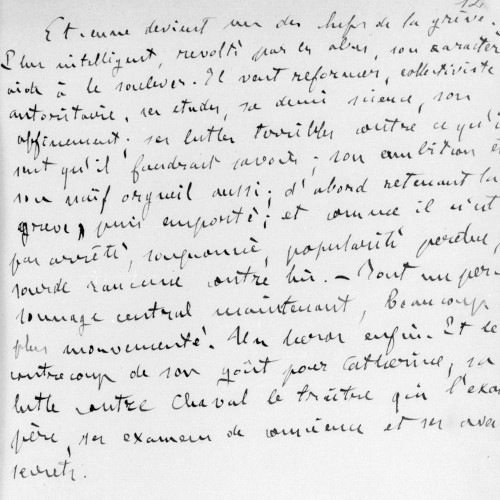 12
Etienne devient un des chefs de la grève.
Plus intelligent, révolté par ces abus, son caractère
aide à le soulever. Il veut réformer, collectiviste
autoritaire, ses études, sa demi science, son
affinement; ses luttes terribles contre ce qu'il
sent qu'il faudrait savoir; son ambition et
son naïf orgueil aussi; d'abord retenant la
grève, puis emporté; et comme il n'est
pas arrêté, soupçonné, popularité perdue,
sourde rancune contre lui. — Tout un per
sonnage central maintenant, beaucoup
plus mouvementé. Un héros enfin. Et le
contrecoup de son goût pour Catherine, sa
lutte contre Chaval le traître qui l'exas
père, ses examens de conscience et ses
secrets.